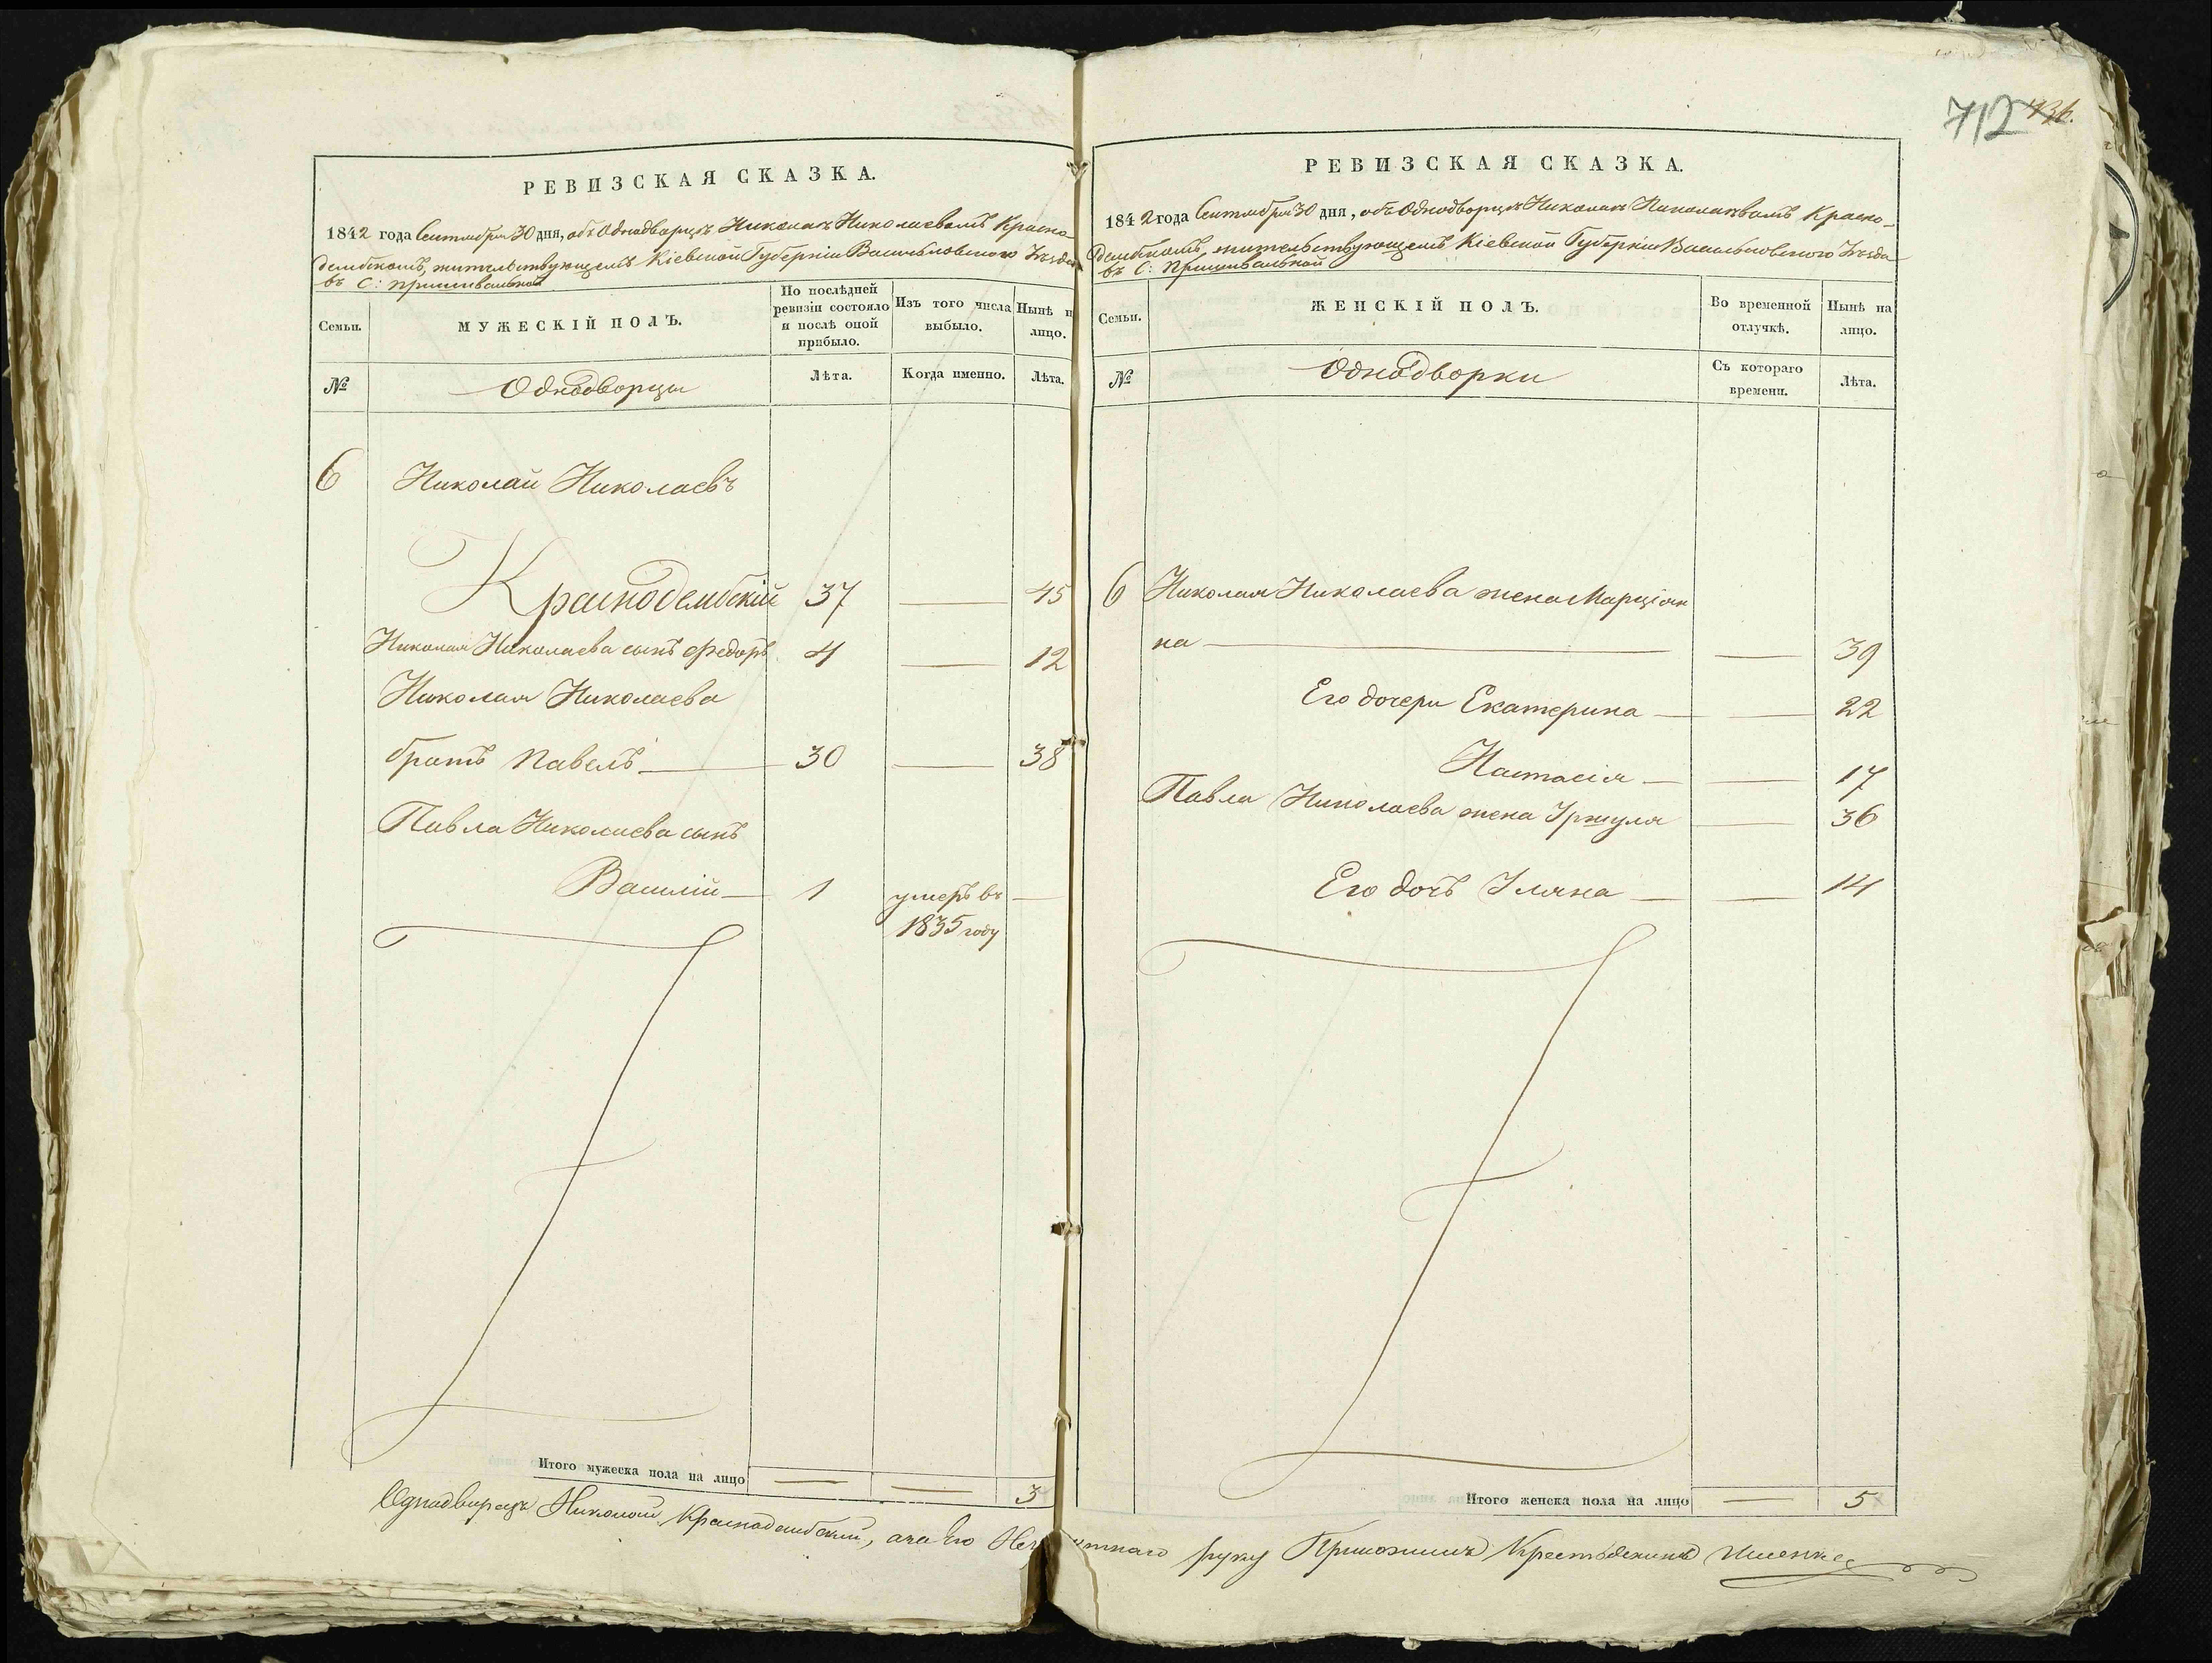 712 436.
РЕВИЗСКАЯ СКАЗКА.
1842 года Сентября 30 дня, объ Однодворцѣ Николаѣ Николаевомъ Красно
дембскомъ, жительствующемъ Кіевской Губерніи Васильковского Уѣзда
въ С: Пришивальной
Семьи.
МУЖЕСКІЙ ПОЛЪ.
По послѣдней
ревизіи состояло
и послѣ оной
прибыло.
Изъ того числа
выбыло.
Нынѣ н
лицо.
№
Однодворцы
Лѣта.
Когда именно.
Лѣта.
6 Николай Николаевъ
Краснодембскій 37 — 45
Николая Николаева сынъ Федоръ 4 — 12
Николая Николаева
братъ Павелъ — 30 — 38
Павла Николаева сынъ
Василій — 1 умеръ въ —
1835 году
Итого мужеска пола на лицо — — 3
РЕВИЗСКАЯ СКАЗКА.
1842 года Сентября 30 дня, объ Однодворцѣ Николаѣ Николаевомъ Красно-
дембскомъ, жительствующемъ Кіевской Губерніи Васильковского Уѣзда
въ С: Пришивальной
Семьи.
ЖЕНСКІЙ ПОЛЪ.
Во временной
отлучкѣ.
Нынѣ на
лицо.
№
Однодворки
Съ котораго
времени.
Лѣта.
6 Николая Николаева жена Марціян
на — — 39
Его дочери Екатерина — — 22
Настасія — — 17
Павла Николаева жена Уршуля — 36
Его дочь Уляна — — 14
Итого женска пола на лицо — 5
Однодворецъ Николай Краснодембский, а за Его руку Приложилъ Крестьянинъ